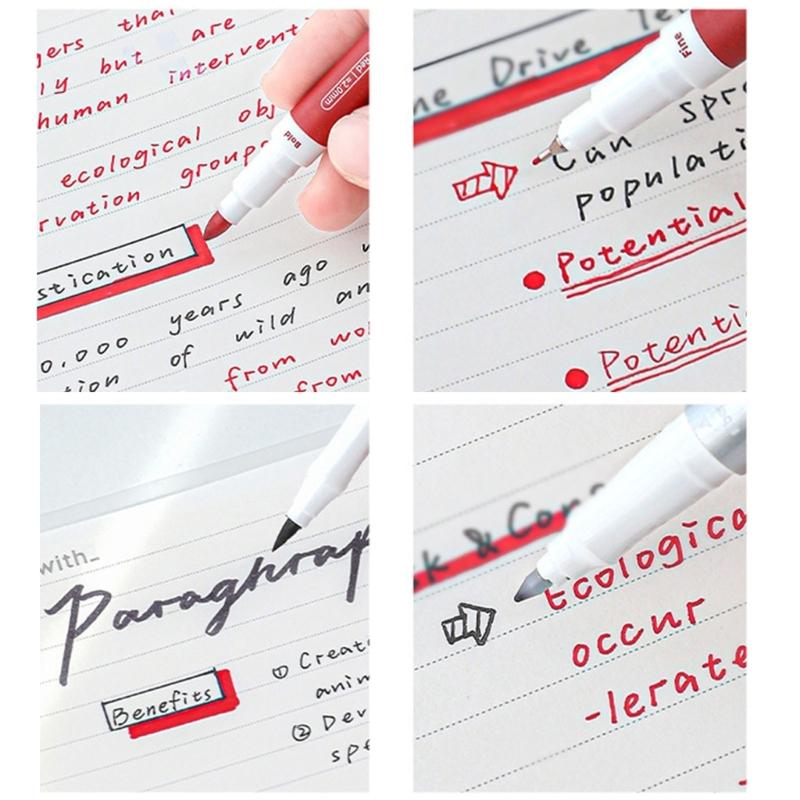 ly but are
human interventi
ecological obj
rvation groups
stication
0,000 years ago
tion of wild an
from wo
from
Bold
Red 1 ≈2.0mm
ne Drive Te
Fine
Can spre
populati
Potential
Potenti
with_
Paragrap
Benefits
① Create
anim
② Dev
spe
k & Cons
Ecologica
occur
-lerate